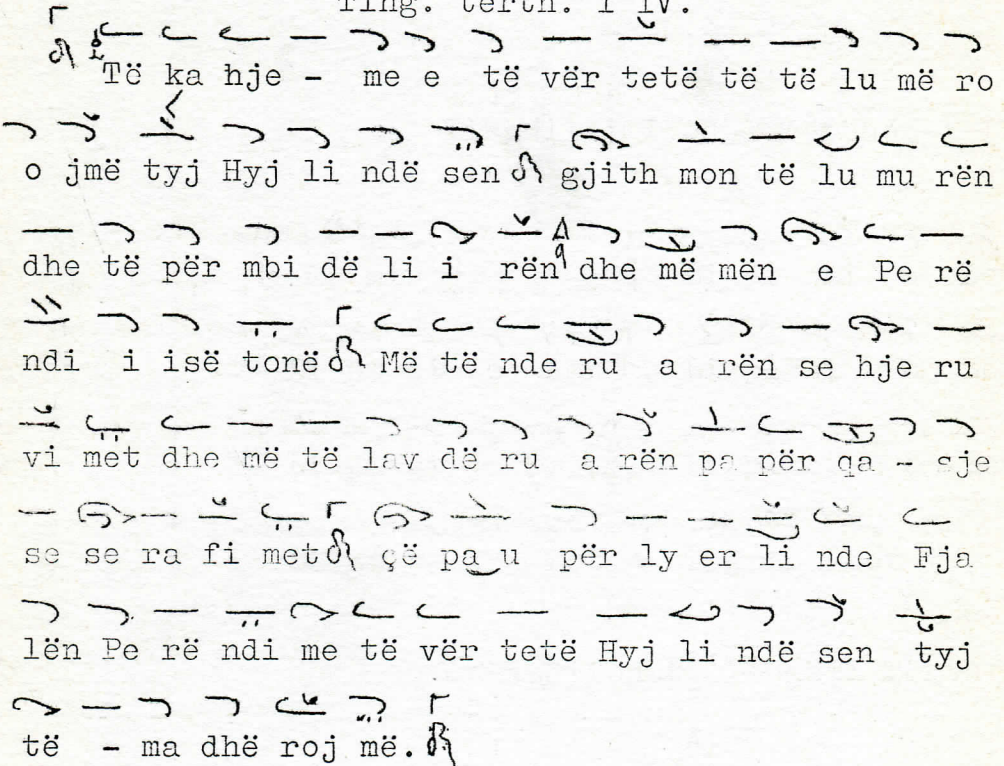 Ting. tërth. i IV.
Të ka hje - me e të vër tetë të të lu më ro
o jmë tyj Hyj li ndë sen gjith mon të lu mu rën
dhe të për mbi dë li i rën dhe më mën e Pe rë
ndi i isë tonë Më të nde ru a rën se hje ru
vi met dhe më të lav dë ru a rën pa për qa - sje
se se ra fi met çë pa u për ly er li nde Fja
lën Pe rë ndi me të vër tetë Hyj li ndë sen tyj
të - ma dhë roj më.